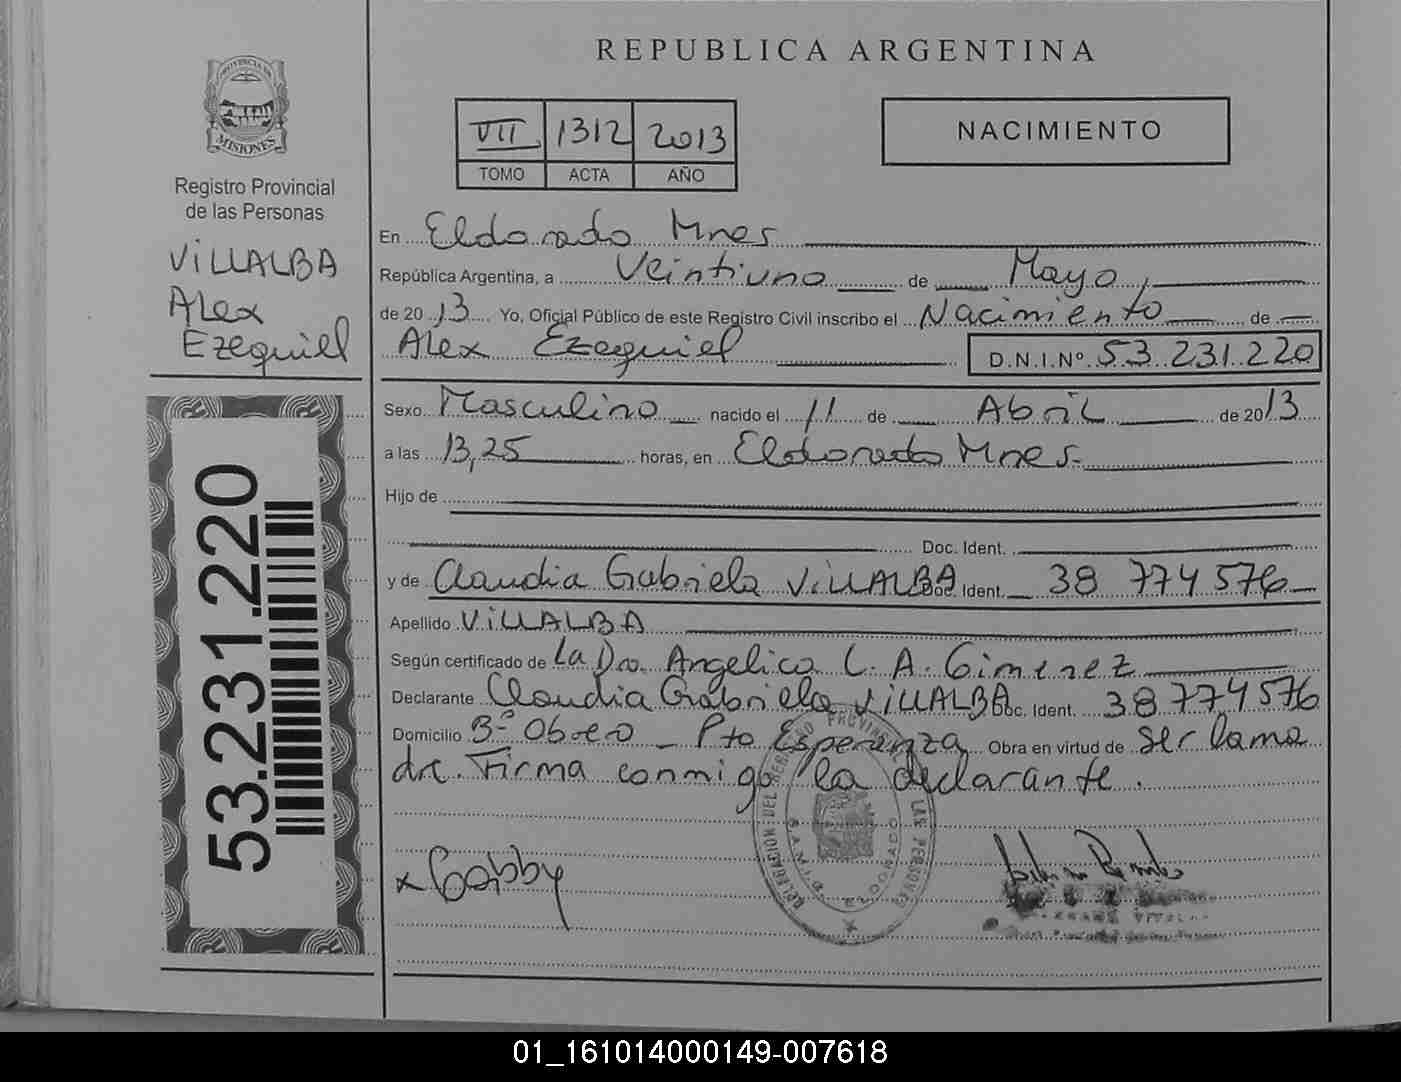 REPUBLICA ARGENTINA
PROVINCIA DE
MISIONES
Registro Provincial
de las Personas
VILLALBA
Alex
Ezequiel
53.231.220
VII 1312 2013
TOMO ACTA AÑO
NACIMIENTO
En Eldorado Mnes
República Argentina, a Veintiuno de Mayo
de 2013 Yo, Oficial Público de este Registro Civil inscribo el Nacimiento de
Alex Ezequiel D.N.I.Nº 53.231.220
Sexo Masculino nacido el 11 de Abril de 2013
a las 13,25 horas, en Eldorado Mnes.
Hijo de
Doc. Ident.
y de Claudia Gabriela VILLALBA Doc. Ident. 38 774 576
Apellido VILLALBA
Según certificado de La Dra. Angelica L. A. Gimenez
Declarante Claudia Gabriela VILLALBA Doc. Ident. 38774576
Domicilio Bº Obrero - Pto Esperanza Obra en virtud de ser la ma
dre. Firma conmigo la declarante.
DELEGACION DEL REGISTRO PROVINCIAL DE LAS PERSONAS
ELDORADO
x Gabby
01_161014000149-007618